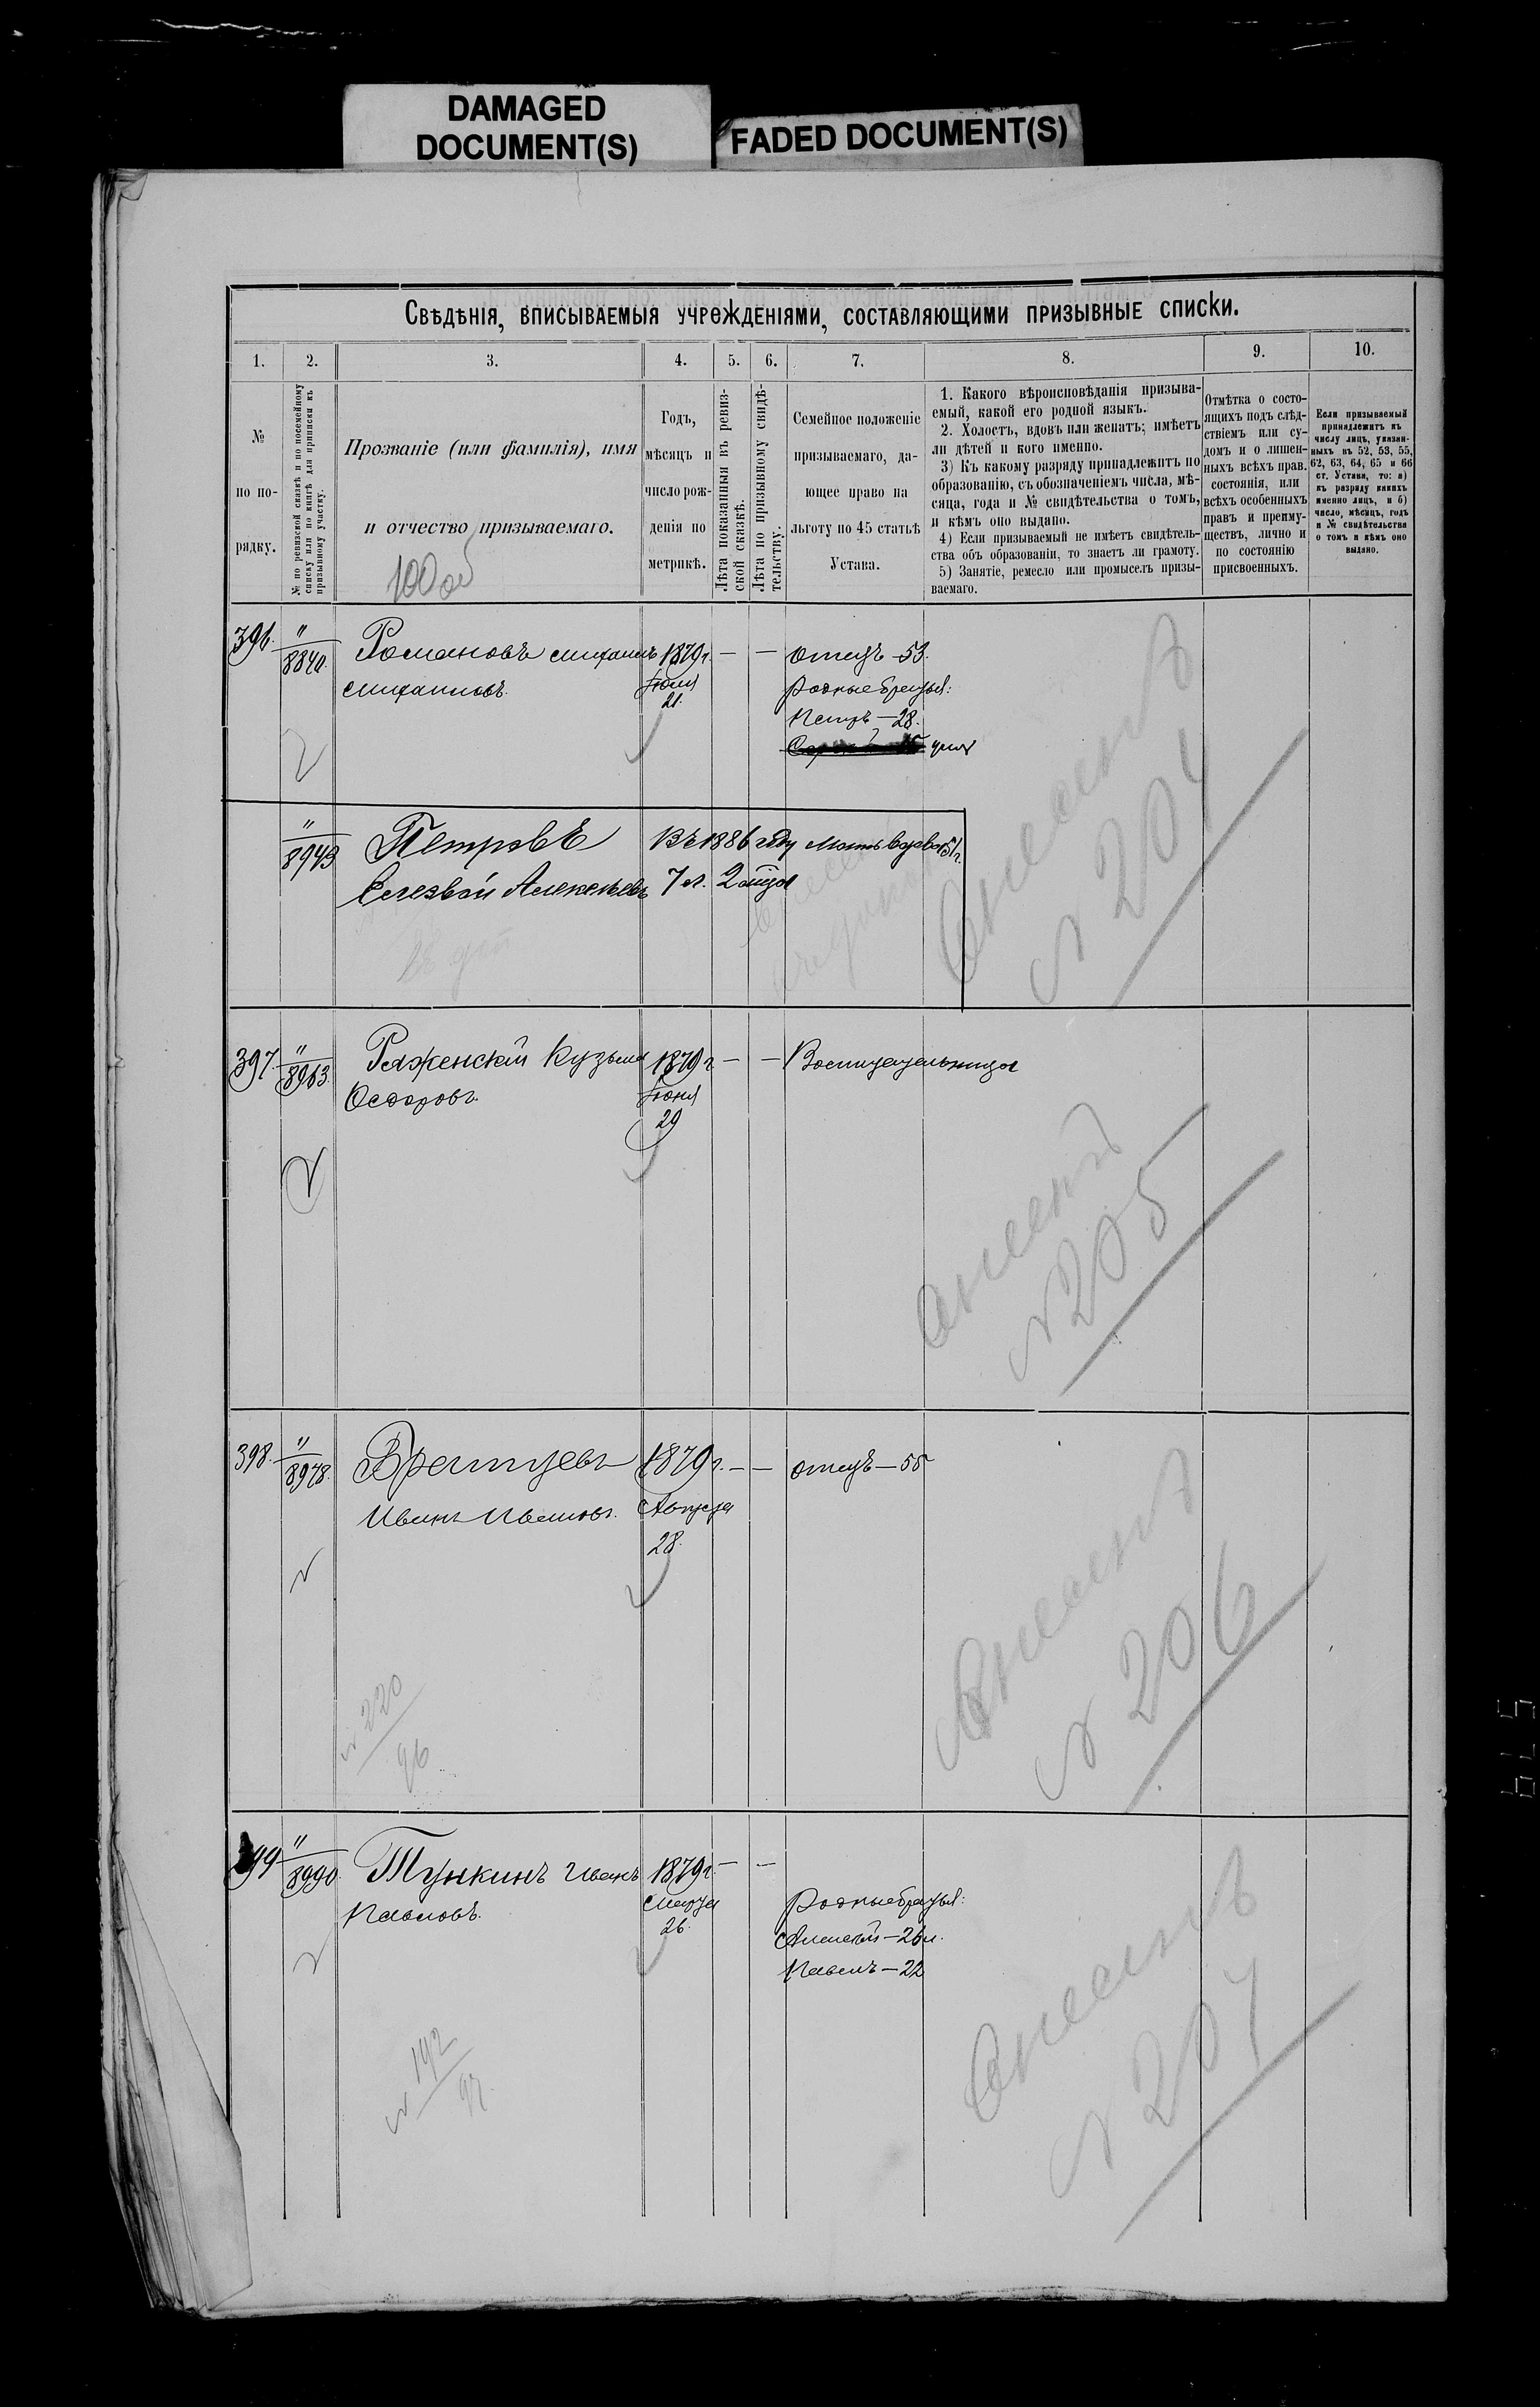 DAMAGED
DOCUMENT(S)
FADED DOCUMENT(S)
Свѣдѣнія, вписываемыя учрежденіями, составляющими призывные списки.
1. 2. 3. 4. 5. 6. 7. 8. 9. 10.
№
по по-
рядку.
№ по ревизской сказкѣ и по посемейному
списку или по книгѣ для приписки къ
призывному участку.
Прозваніе (или фамилія), имя
и отчество призываемаго.
Годъ,
мѣсяцъ и
число рож-
денія по
метрикѣ.
Лѣта показанныя въ ревиз-
ской сказкѣ.
Лѣта по призывному свидѣ-
тельству.
Семейное положеніе
призываемаго, да-
ющее право на
льготу по 45 статьѣ
Устава.
1. Какого вѣроисповѣданія призыва-
емый, какой его родной языкъ.
2. Холостъ, вдовъ или женатъ; имѣетъ
ли дѣтей и кого именно.
3) Къ какому разряду принадлежитъ по
образованію, съ обозначеніемъ числа, мѣ-
сяца, года и № свидѣтельства о томъ,
и кѣмъ оно выдано.
4) Если призываемый не имѣетъ свидѣтель-
ства объ образованіи, то знаетъ ли грамоту.
5) Занятіе, ремесло или промыселъ призы-
ваемаго.
Отмѣтка о состо-
ящихъ подъ слѣд-
ствіемъ или су-
домъ и о лишен-
ныхъ всѣхъ прав.
состоянія, или
всѣхъ особенныхъ
правъ и преиму-
ществъ, лично и
по состоянію
присвоенныхъ.
Если призываемый
принадлежитъ къ
числу лицъ, указан-
ныхъ въ 52, 53, 55,
62, 63, 64, 65 и 66
ст. Устава, то: а)
къ разряду какихъ
именно лицъ, и б)
число, мѣсяцъ, годъ
и № свидѣтельства
о томъ и кѣмъ оно
выдано.
396. " 8840. Романовъ Михаилъ 1879 г. — — Отецъ — 53.
Михаиловъ. Іюля Родные братья:
21. Петръ — 28.
умеръ
" 8943 Петровъ Въ 1886 году Мать Варвара 51 г.
Елезвой Алексѣевъ 7 л. 2 отца
Внесенъ
№ 204
397. " 8963. Ряженскій Кузьма 1879 г. — — Воспитательница
Ѳедоровъ. Іюня
29
Внесенъ
№ 205
398. " 8978. Братцевъ 1879 г. — — Отецъ — 55
Иванъ Ивановъ. Августа
28.
Внесенъ
№ 206
№ 220
96
399 " 8990. Тункинъ Иванъ 1879 г. — —
Павловъ. Марта Родные братья:
26. Алексѣй — 26 л.
Павелъ — 22
Внесенъ
№ 207
№ 192
97.